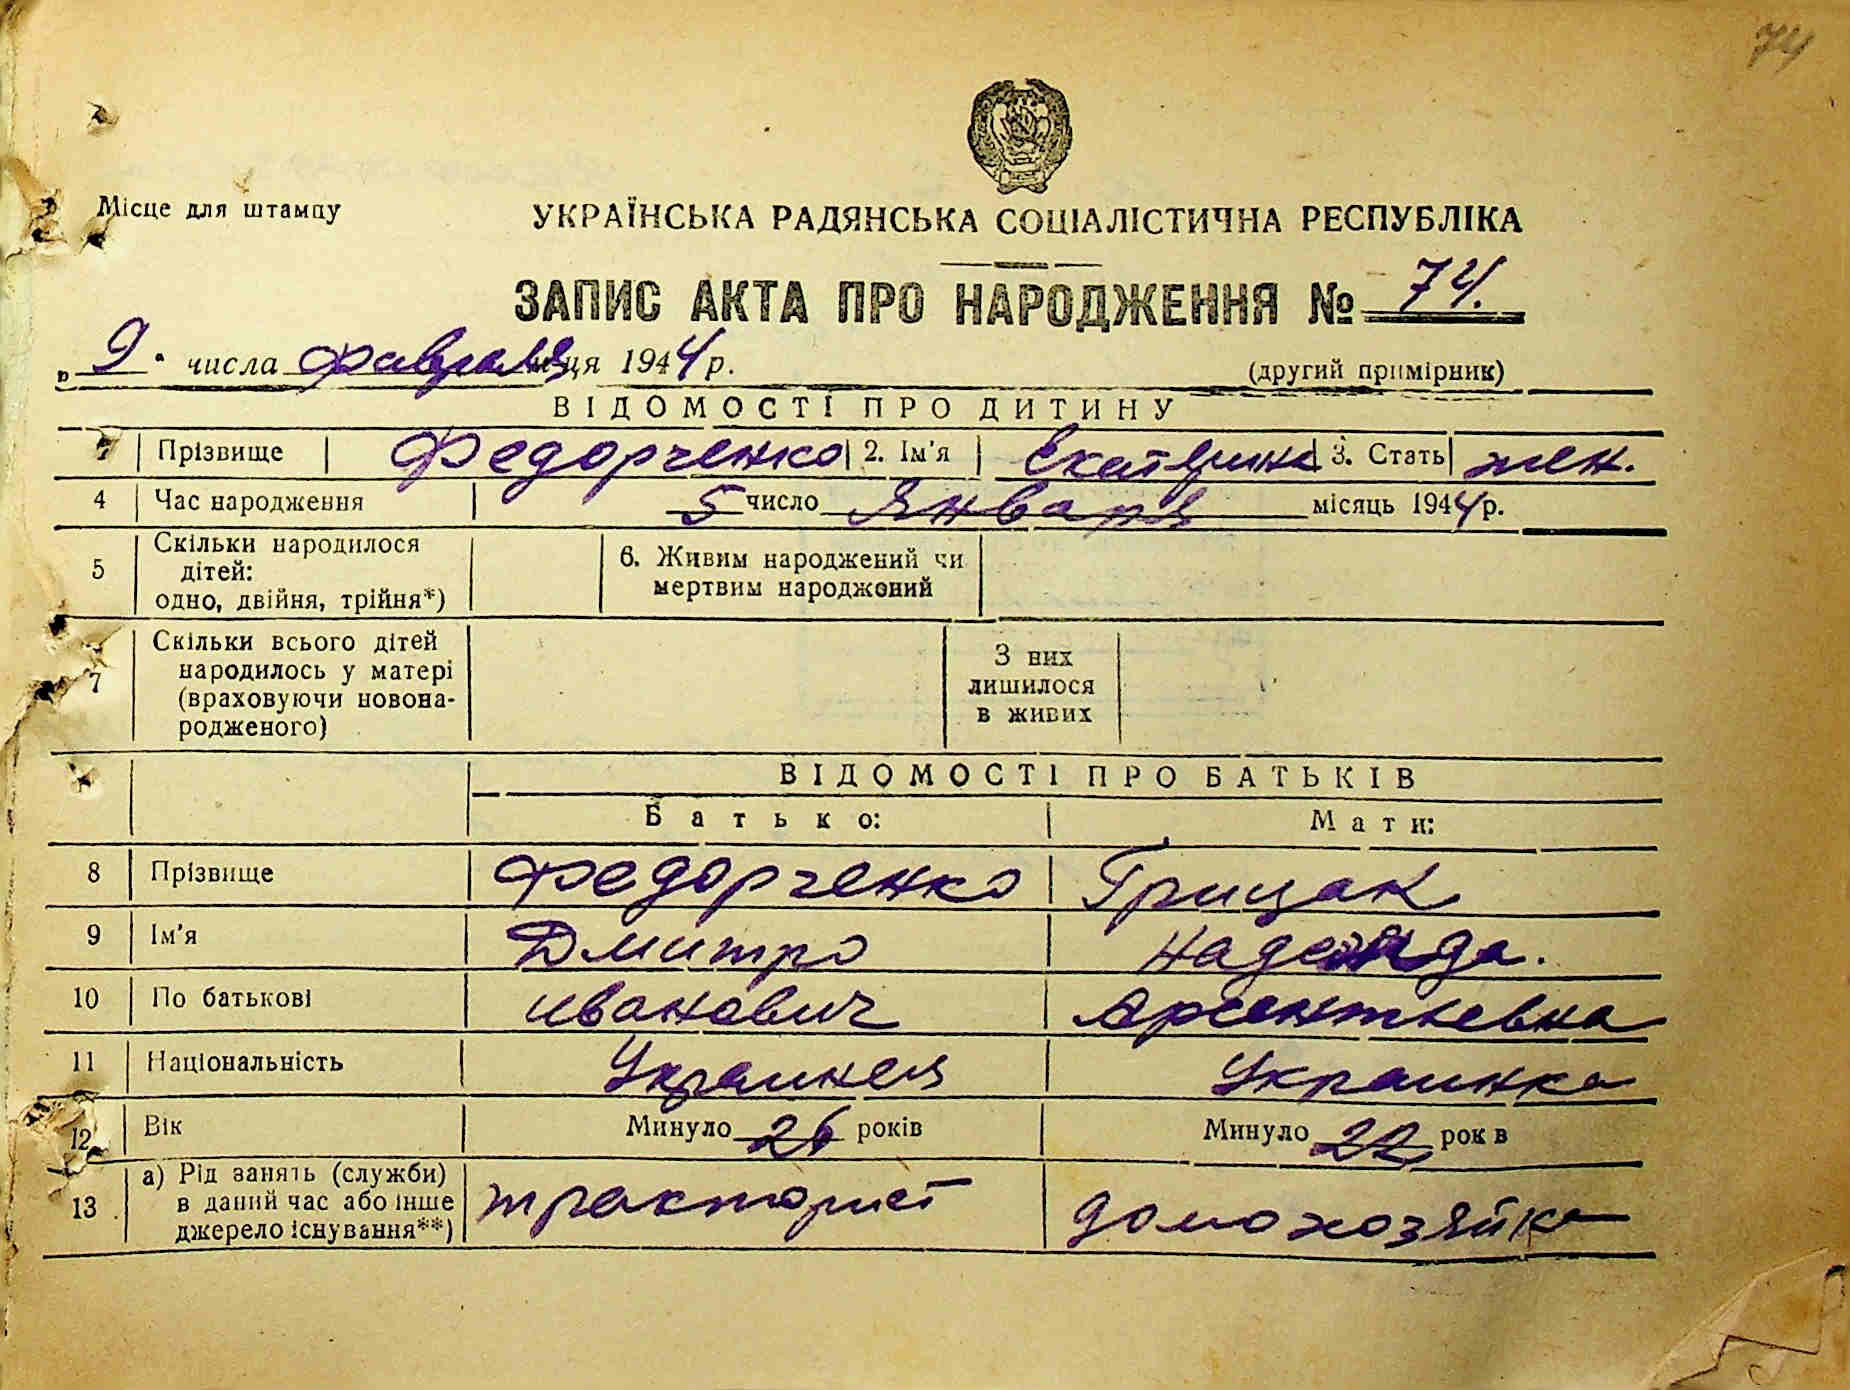 74
Місце для штампу
УКРАЇНСЬКА РАДЯНСЬКА СОЦІАЛІСТИЧНА РЕСПУБЛІКА
ЗАПИС АКТА ПРО НАРОДЖЕННЯ № 74.
„ 9 . числа февраля місяця 1944 р.
(другий примірник)
ВІДОМОСТІ ПРО ДИТИНУ
Прізвище Федорченко 2. Ім'я Екатерина 3. Стать жен.
4 Час народження 5 число Января місяць 1944 р.
5 Скільки народилося дітей: одно, двійня, трійня*) 6. Живим народжений чи мертвим народжений
7 Скільки всього дітей народилось у матері (враховуючи новонародженого) З них лишилося в живих
ВІДОМОСТІ ПРО БАТЬКІВ
Батько: Мати:
8 Прізвище Федорченко Грицак
9 Ім'я Дмитро Надежда.
10 По батькові Иванович Арсентьевна
11 Національність Украинец Украинка
12 Вік Минуло 26 років Минуло 22 років
13 а) Рід занять (служби) в даний час або інше джерело існування**) тракторист домохозяйка